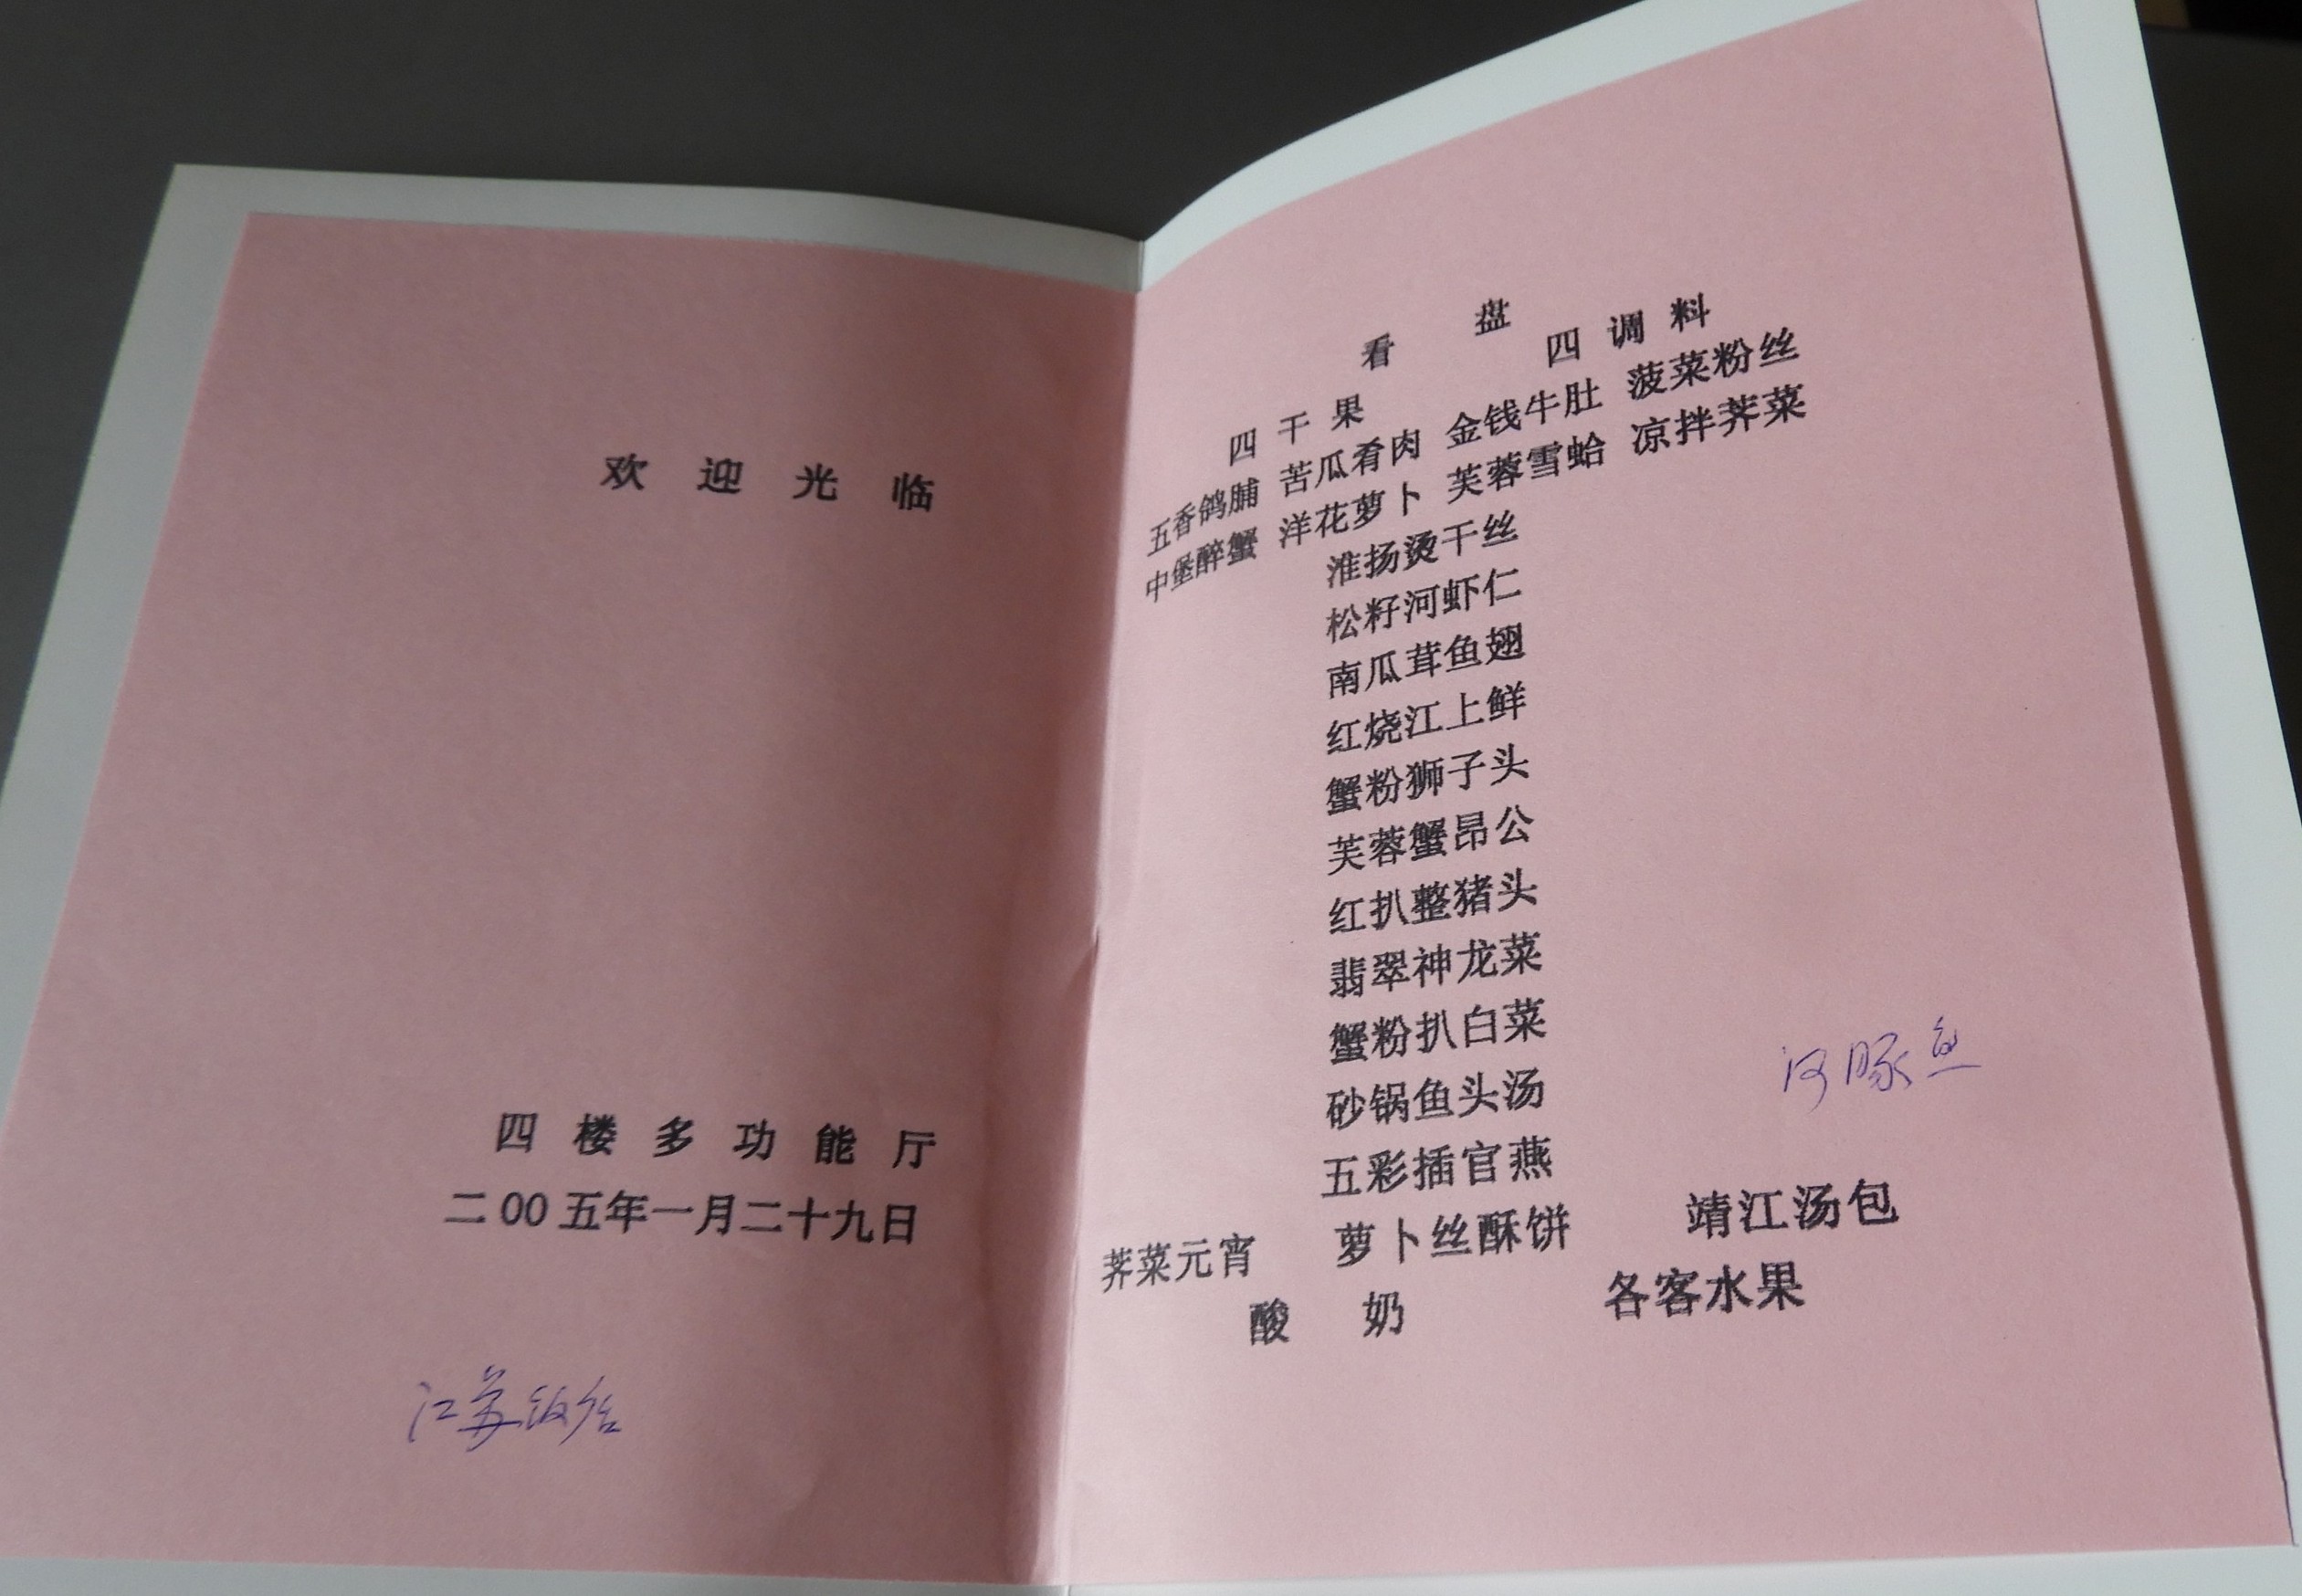 欢迎光临
四楼多功能厅
二00五年一月二十九日
江苏饭店
看 盘
四干果 四调料
五香鸽脯 苦瓜肴肉 金钱牛肚 菠菜粉丝
中堡醉蟹 洋花萝卜 芙蓉雪蛤 凉拌荠菜
淮扬烫干丝
松籽河虾仁
南瓜茸鱼翅
红烧江上鲜
蟹粉狮子头
芙蓉蟹昂公
红扒整猪头
翡翠神龙菜
蟹粉扒白菜
砂锅鱼头汤
河豚鱼
五彩插官燕
荠菜元宵 萝卜丝酥饼 靖江汤包
酸 奶 各客水果